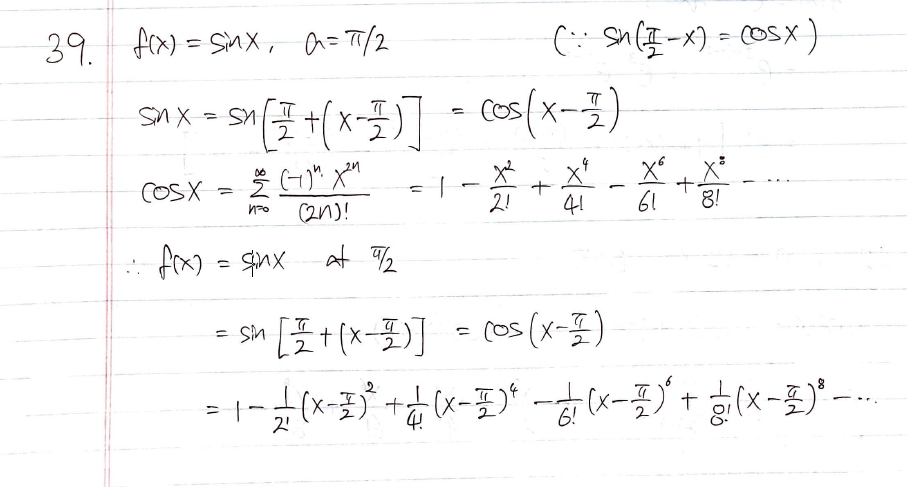 39. f(x) = sinx, a = π/2 (∵ sin(π/2 - x) = cosx)
sinx = sin[π/2 + (x - π/2)] = cos(x - π/2)
cosx = ∑_{n=0}^{∞} (-1)^n · x^{2n} / (2n)! = 1 - x²/2! + x⁴/4! - x⁶/6! + x⁸/8! - ...
∴ f(x) = sinx at π/2
= sin[π/2 + (x - π/2)] = cos(x - π/2)
= 1 - 1/2! (x - π/2)² + 1/4! (x - π/2)⁴ - 1/6! (x - π/2)⁶ + 1/8! (x - π/2)⁸ - ...